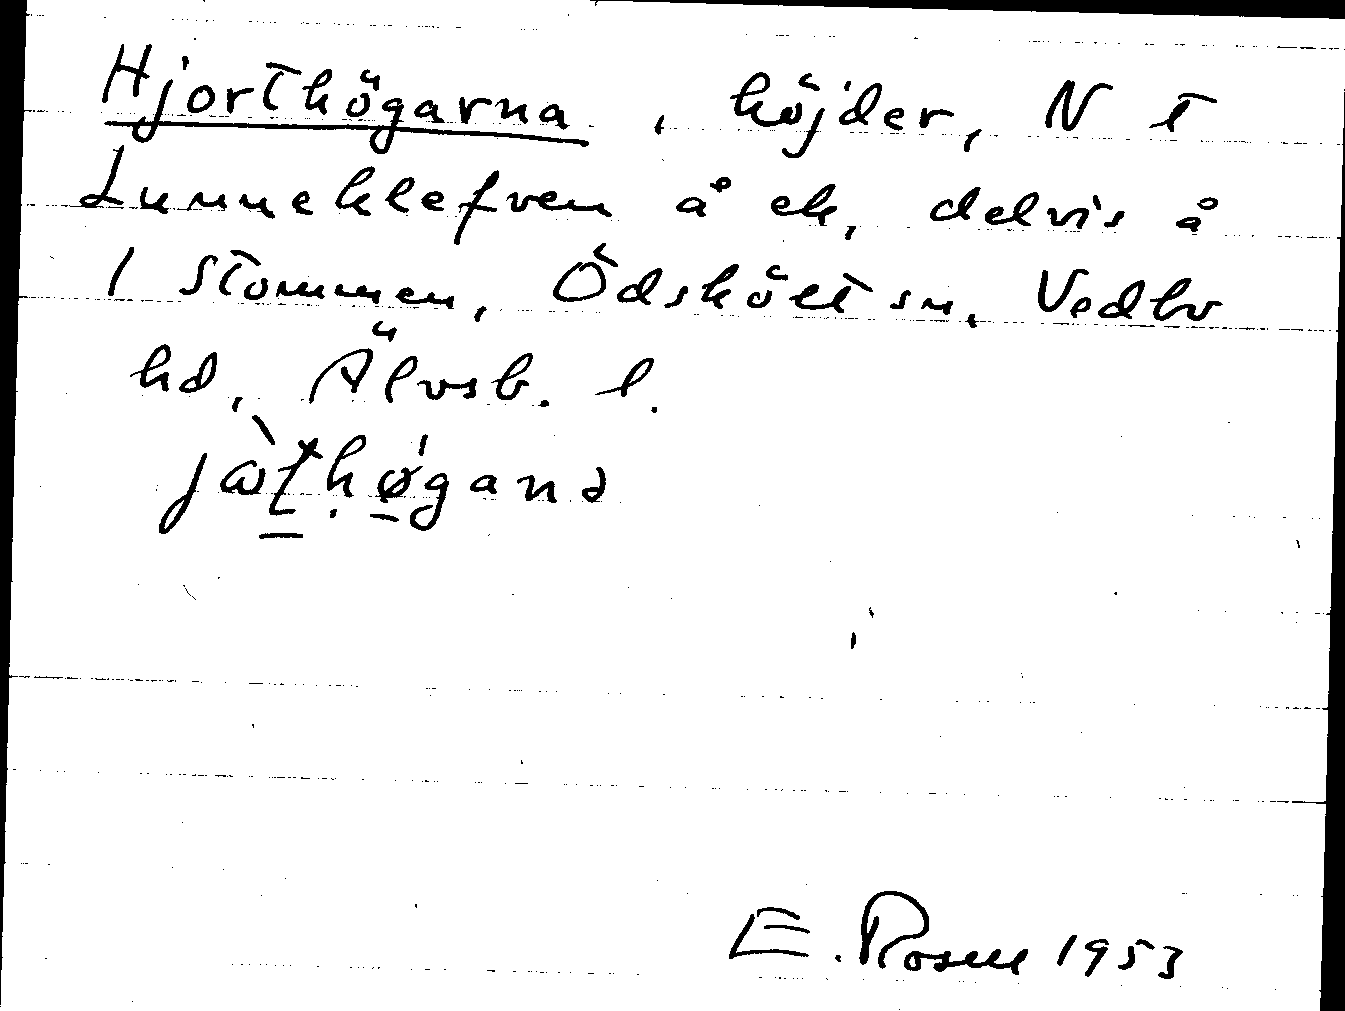 Hjorthögarna, höjder, N t
Lunneklefven å ek, delvis å
1 Stommen, Ödskölt sn, Vedbo
hd, Älvsb. l.
E. Rosell 1953